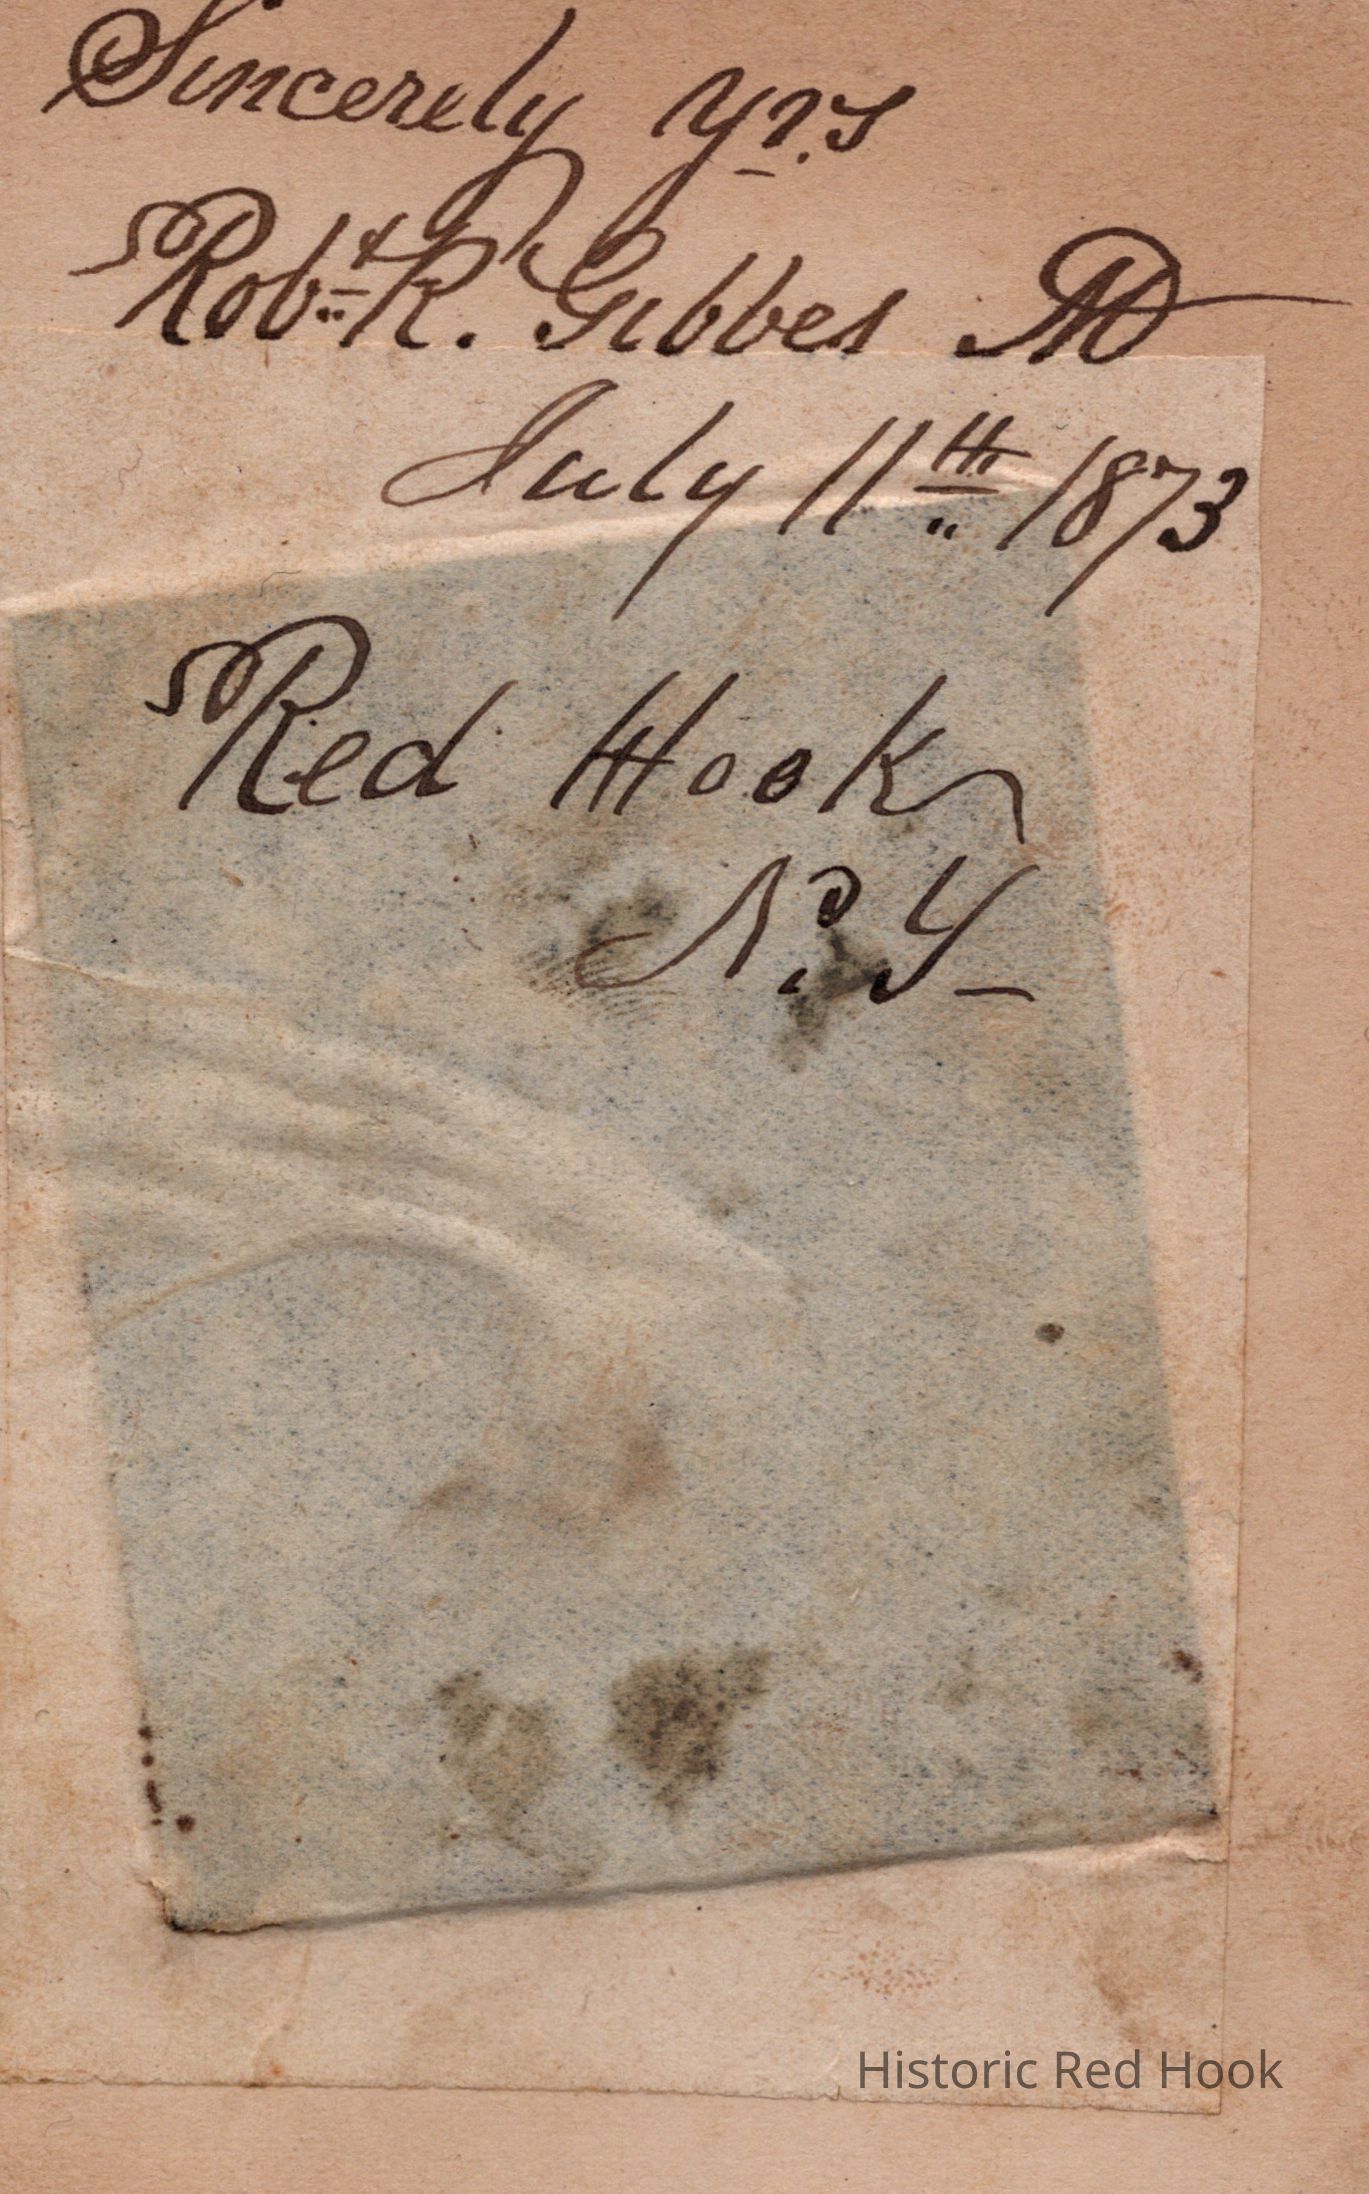 Sincerely Yrs
Robt. R. Gibbes MD
July 11th 1873
Red Hook
N. Y_
Historic Red Hook